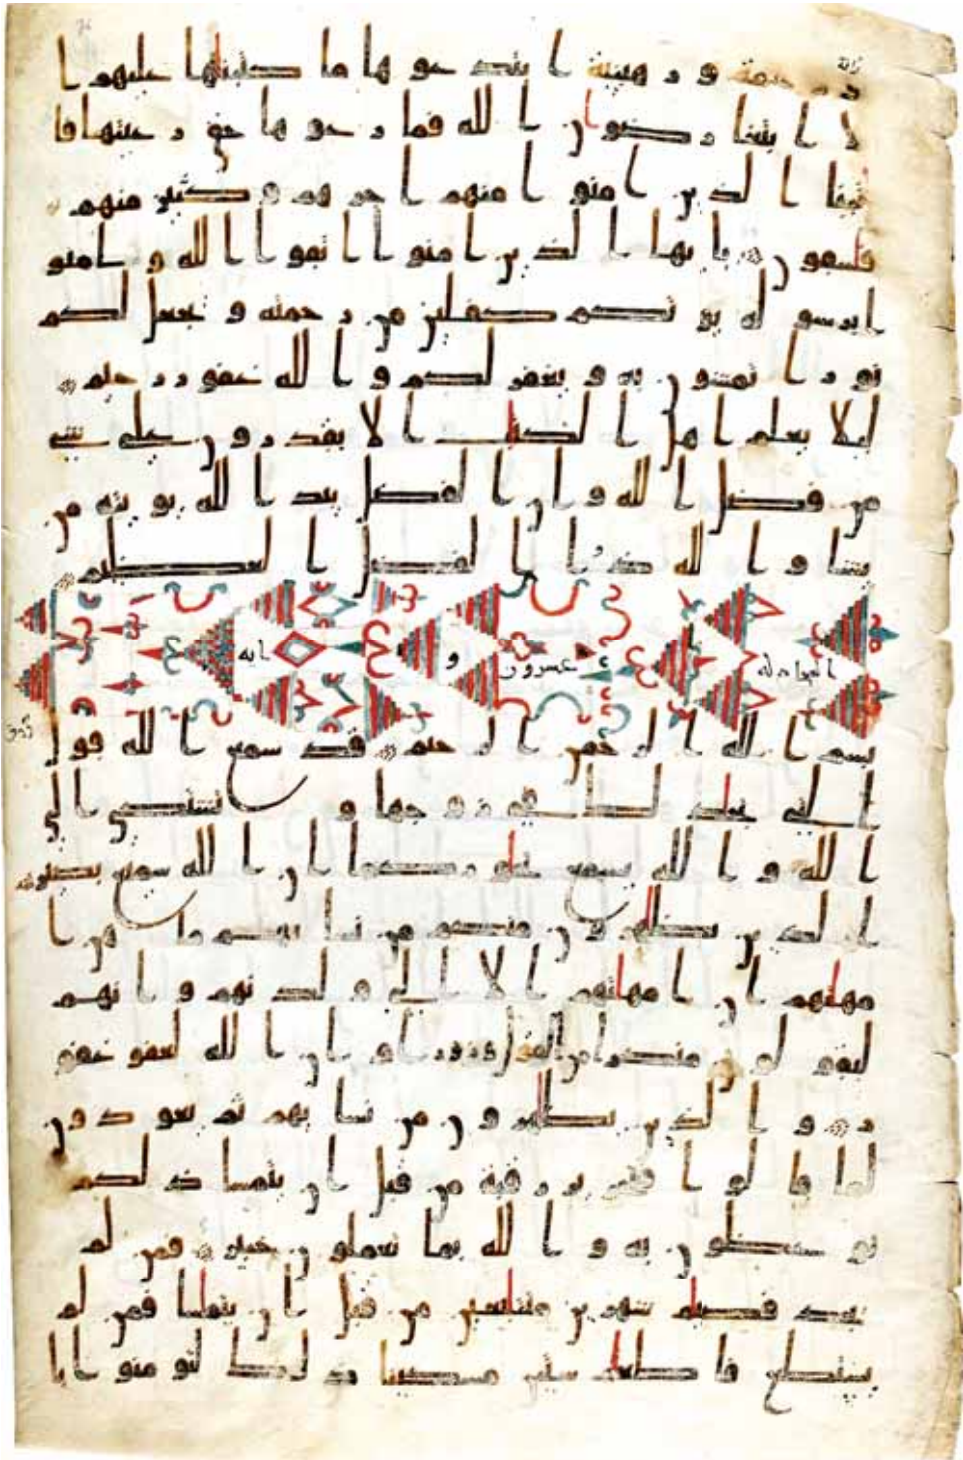 ور حمة ور هبنية ابتدعوها ما كتبنها عليهم ا
لا ابتغا رضون الله فما رعوها حق رعيتها فا
تينا الذين امنوا منهم اجرهم وكثير منهم
فسقون يايها الذين امنوا اتقوا الله وامنو
ا برسوله يوتكم كفلين من رحمته ويجعل لكم
نورا تمشون به ويغفر لكم والله غفور رحيم
ليلا يعلم اهل الكتاب الا يقدرون على شى
من فضل الله وان الفضل بيد الله يوتيه من
يشا والله ذو ا الفضل العظيم
المجادله عشرون و ايه
بسم الله الرحمن الرحيم قد سمع الله قول
التى تجدلك فى زوجها وتشتكى الى
الله والله يسمع تحاوركما ان الله سميع بصير
الذين يظهرون منكم من نسايهم ما هن ا
مهاتهم ان امهاتهم الا الى ولدنهم وانهم
ليقولون منكرا من القول وزورا وان الله لعفو غفو
ر والذين يظاهرون من نسايهم ثم يعودون
لما قالوا فتحرير رقبة من قبل ان يتماسا ذلكم
توعظون به والله بما تعملون خبير فمن لم
يجد فصيام شهرين متتابعين من قبل ان يتماسا فمن لم
يستطع فاطعام ستين مسكينا ذلك لتومنوا با